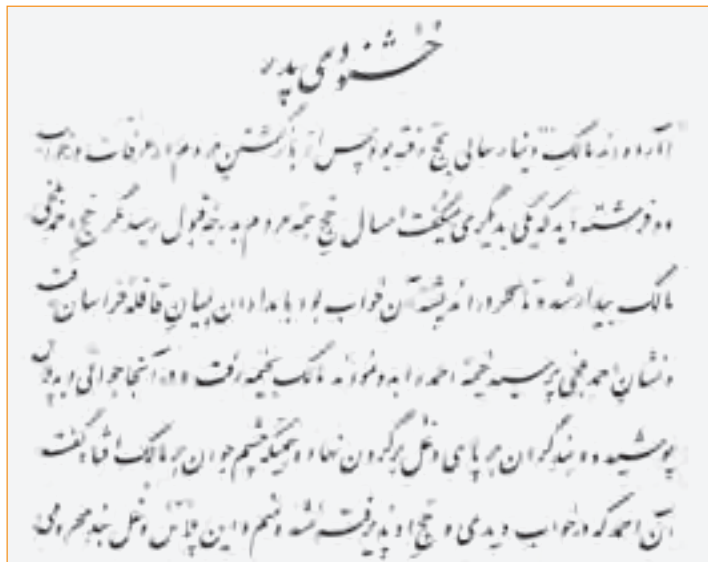 خشنودی پدر
آورده اند مالک دینار سالی بحج رفته بود پس از بازگشتن مردم از عرفات در خواب
دو فرشته دید که یکی بدیگری میگفت امسال حج همه مردم بدرجه قبول رسید مگر حج احمد بلخی
مالک بیدار شد و تا سحر در اندیشه آن خواب بود بامدادان بمیان قافله خراسان رفت
و نشان احمد بلخی پرسید خیمه احمد را بدو نمودند مالک بخیمه رفت و در آنجا جوانی دید پلاس
پوشیده و بند گران بر پای و غل بر گردن نهاده همینکه چشم جوان بر مالک افتاد گفت
آن احمد که در خواب دیدی و حج او پذیرفته نشد منم و این پلاس و غل محرومی